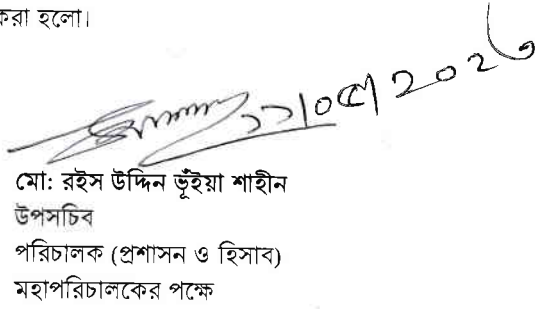 করা হলো।
১১/০৫/২০২৬
মো: রইস উদ্দিন ভূঁইয়া শাহীন
উপসচিব
পরিচালক (প্রশাসন ও হিসাব)
মহাপরিচালকের পক্ষে